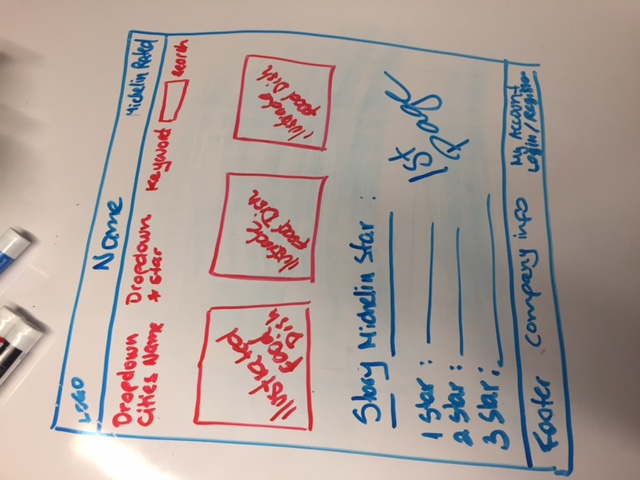 LOGO
Name
Michelin Rated
Dropdown
Cities Name
Dropdown
* Star
Keyword
Search
Ilustrated
Food
Dish
Ilustrade
Food Dish
ilustrade
Food Dish
Story Michelin Star :
1 Star :
2 Star :
3 Star :
1st
Page
Footer
company info
My Account
Login / Register